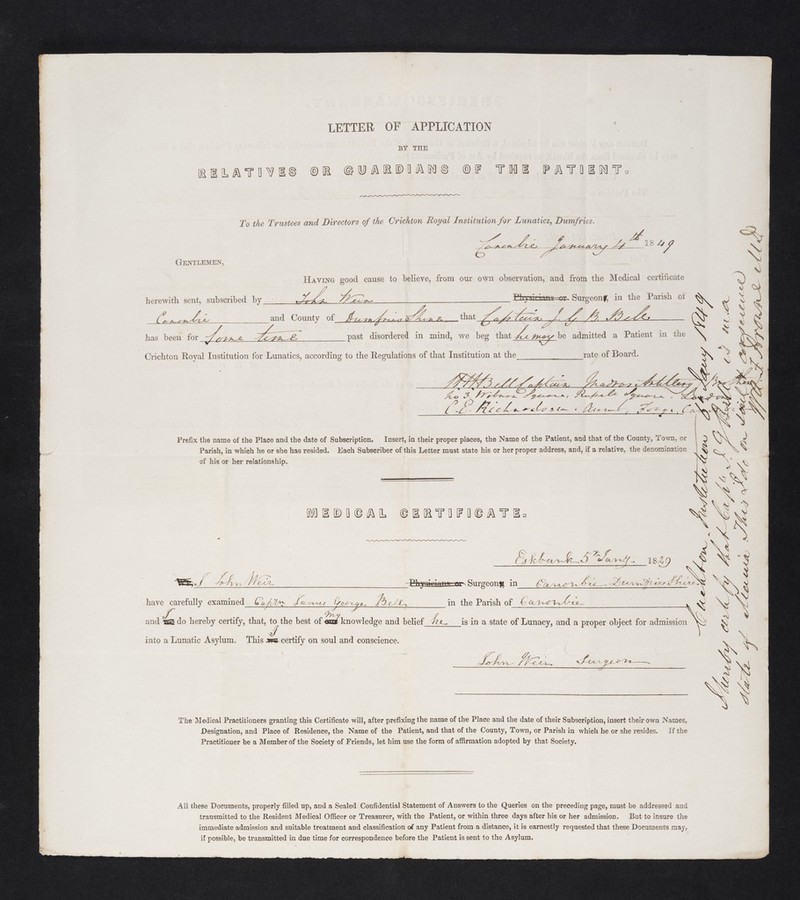 LETTER OF APPLICATION
BY THE
RELATIVES OR GUARDIANS OF THE PATIENT.
To the Trustees and Directors of the Crichton Royal Institution for Lunatics, Dumfries.
Canonbie January 4th 1849
GENTLEMEN,
HAVING good cause to believe, from our own observation, and from the Medical certificate
herewith sent, subscribed by John Weir Physicians or Surgeon, in the Parish of
Canonbie and County of Dumfries Shire that Captain J. G. B. Bell
has been for some time past disordered in mind, we beg that he may be admitted a Patient in the
Crichton Royal Institution for Lunatics, according to the Regulations of that Institution at the rate of Board.
Bell Captain Madras Artillery
No 3 Square
C. E. Richardson Forge
Prefix the name of the Place and the date of Subscription. Insert, in their proper places, the Name of the Patient, and that of the County, Town, or
Parish, in which he or she has resided. Each Subscriber of this Letter must state his or her proper address, and, if a relative, the denomination
of his or her relationship.
MEDICAL CERTIFICATE.
Eskbank 5th Jany. 1849
We, I John Weir Physicians or Surgeons in Canonbie Dumfries Shire
have carefully examined Captn James George Bell in the Parish of Canonbie
and I we do hereby certify, that, to the best of my our knowledge and belief he is in a state of Lunacy, and a proper object for admission
into a Lunatic Asylum. This I we certify on soul and conscience.
John Weir Surgeon
The Medical Practitioners granting this Certificate will, after prefixing the name of the Place and the date of their Subscription, insert their own Names,
Designation, and Place of Residence, the Name of the Patient, and that of the County, Town, or Parish in which he or she resides. If the
Practitioner be a Member of the Society of Friends, let him use the form of affirmation adopted by that Society.
All these Documents, properly filled up, and a Sealed Confidential Statement of Answers to the Queries on the preceding page, must be addressed and
transmitted to the Resident Medical Officer or Treasurer, with the Patient, or within three days after his or her admission. But to insure the
immediate admission and suitable treatment and classification of any Patient from a distance, it is earnestly requested that these Documents may,
if possible, be transmitted in due time for correspondence before the Patient is sent to the Asylum.
Crichton Institution 6 Jany 1849
I hereby certify that Captn J. G. Bell is in a
state of Mania This I do on soul & conscience
Browne MD